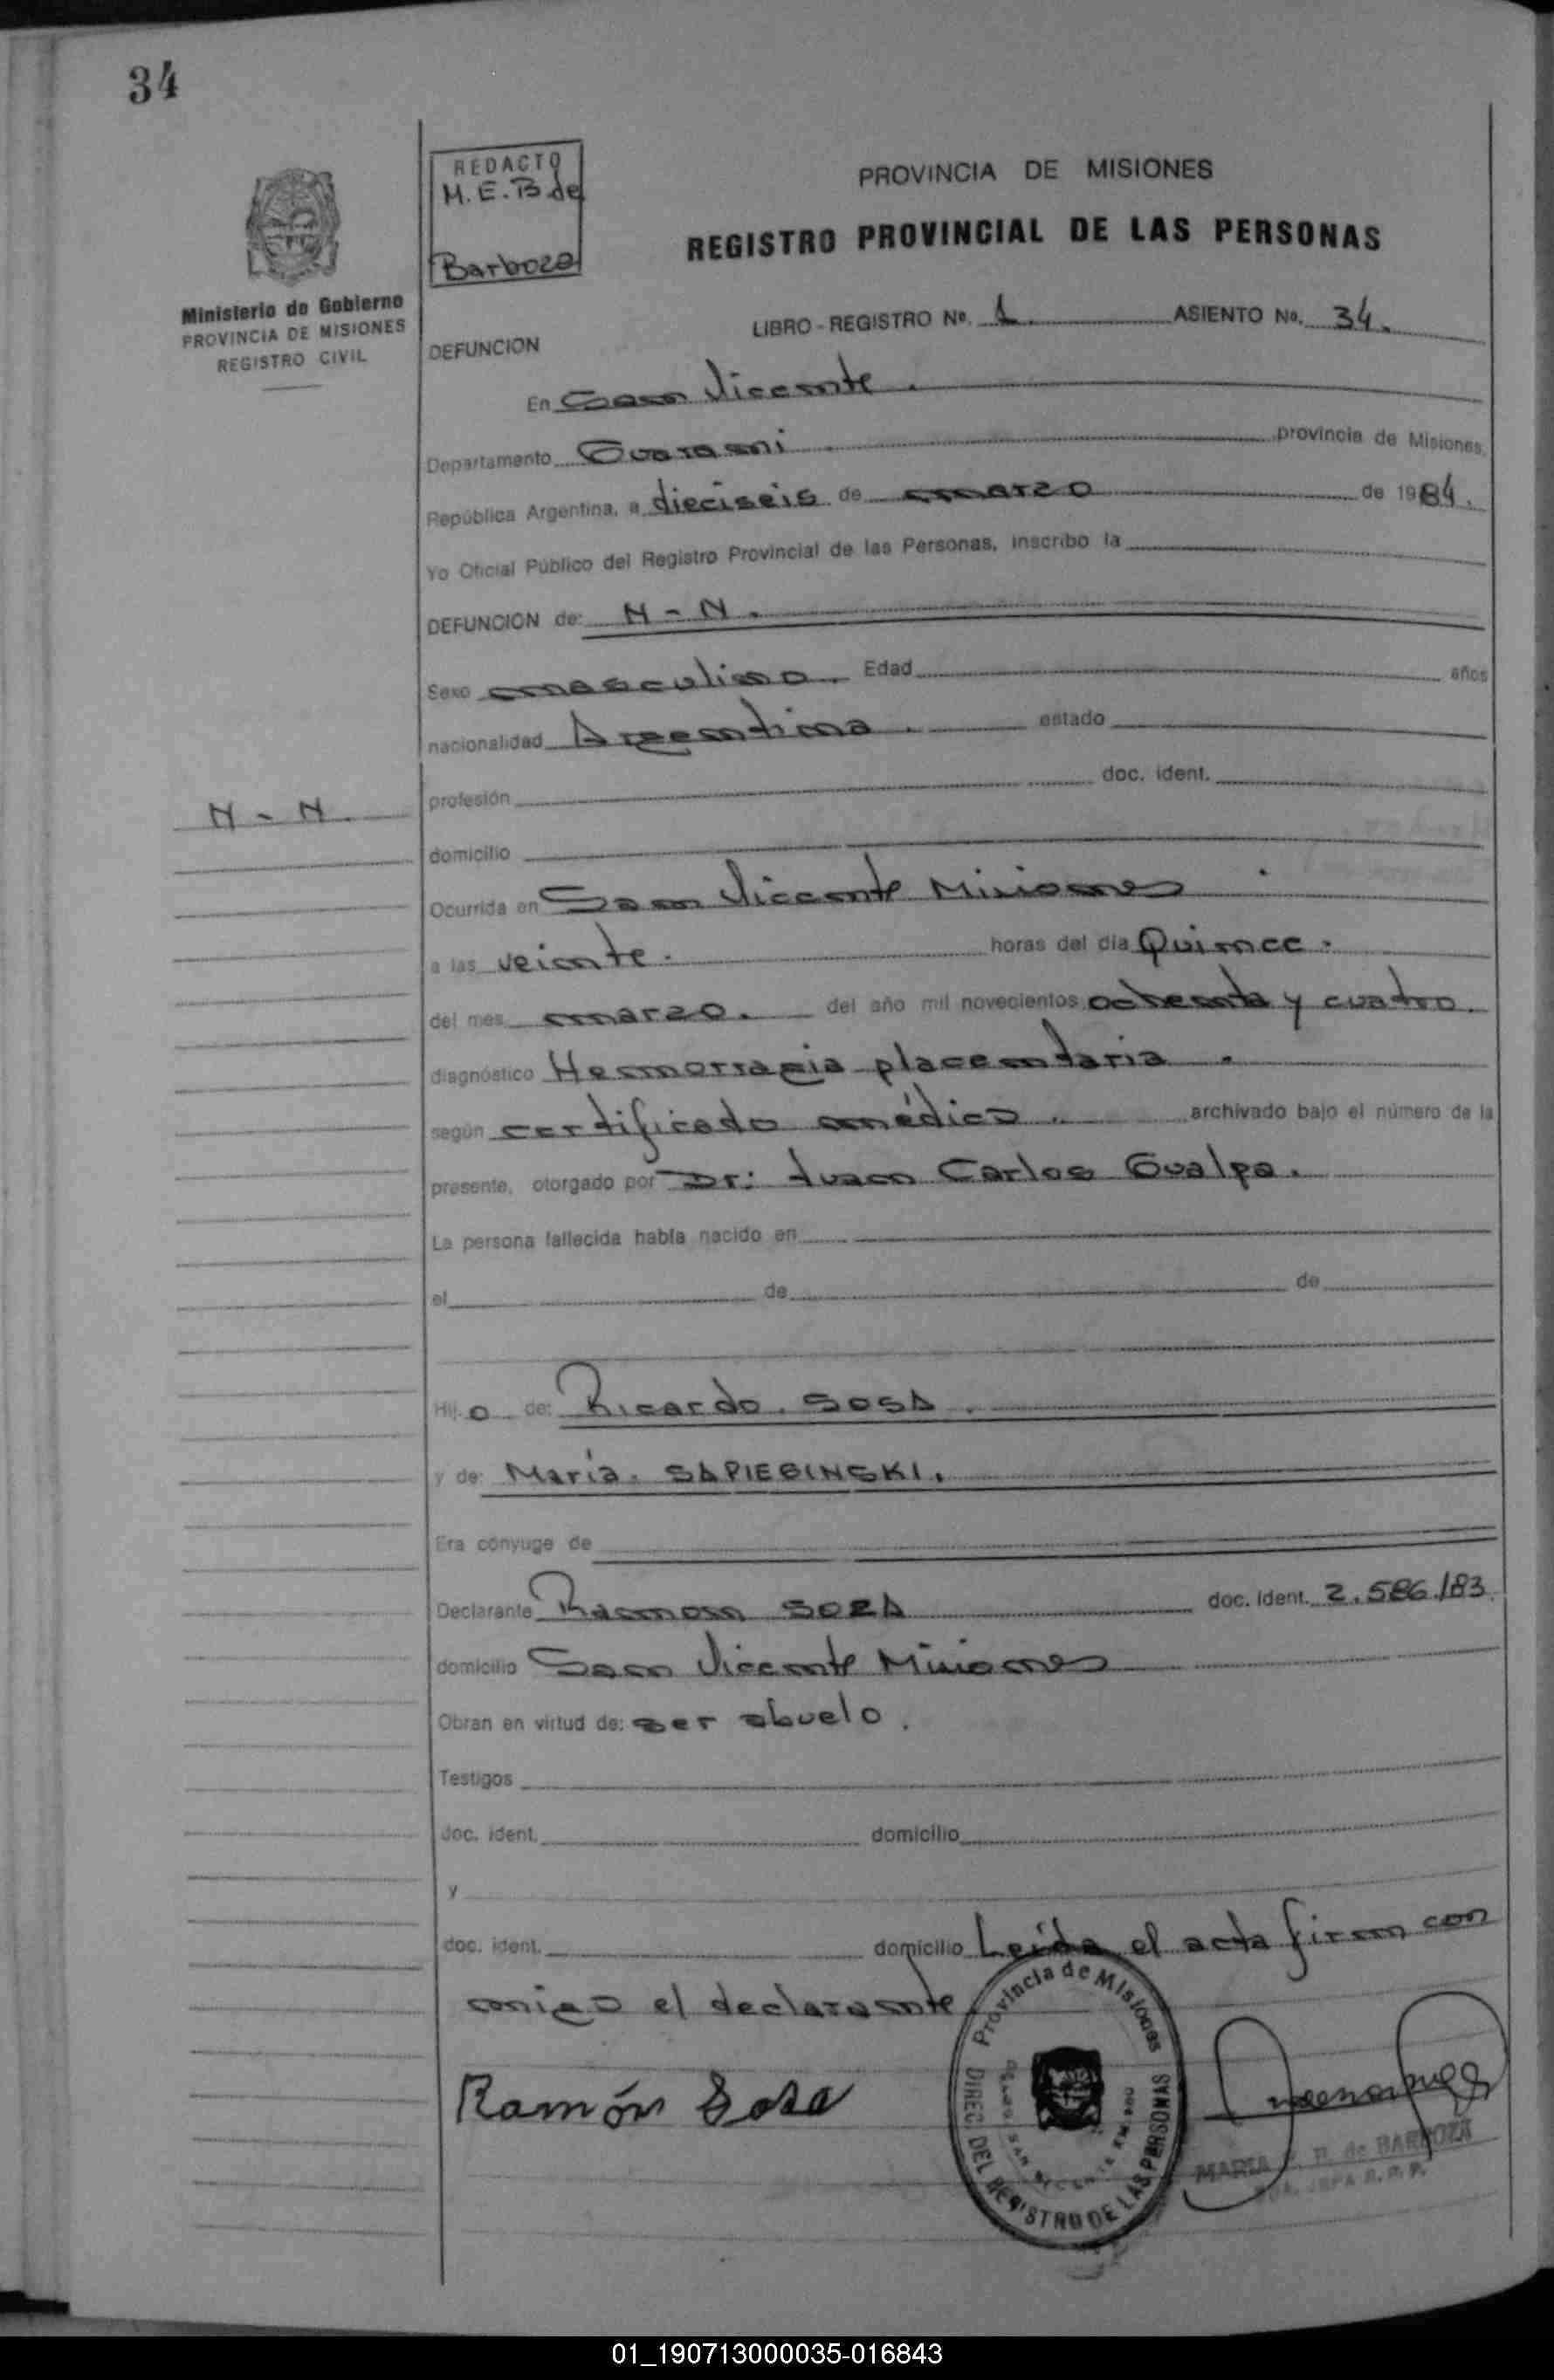 34
REDACTO
M.E.B de
Barboza
PROVINCIA DE MISIONES
REGISTRO PROVINCIAL DE LAS PERSONAS
Ministerio de Gobierno
PROVINCIA DE MISIONES
REGISTRO CIVIL
LIBRO - REGISTRO Nº. 1. ASIENTO Nº. 34.
DEFUNCION
En San Vicente.
Departamento Guarani provincia de Misiones,
República Argentina, a dieciseis de marzo de 1984.
Yo Oficial Público del Registro Provincial de las Personas, inscribo la
DEFUNCION de: N - N.
Sexo masculino. Edad años
nacionalidad Argentina. estado
profesión doc. ident.
N - N.
domicilio
Ocurrida en San Vicente Misiones.
a las veinte. horas del día Quince.
del mes marzo. del año mil novecientos ochenta y cuatro.
diagnóstico Hemorragia placentaria.
según certificado médico. archivado bajo el número de la
presente, otorgado por Dr: Juan Carlos Gualpa.
La persona fallecida había nacido en
el de de
Hij o de: Ricardo. SOSA.
y de: María. SAPIEGINSKI.
Era cónyuge de
Declarante Ramon SOSA doc. ident. 2.586.183.
domicilio San Vicente Misiones
Obran en virtud de: ser abuelo.
Testigos
doc. ident. domicilio
y
doc. ident. domicilio Leída el acta firm con
migo el declarante
Provincia de Misiones
DIREC. DEL REGISTRO DE LAS PERSONAS
Ramón Sosa
MARIA de BARBOZA